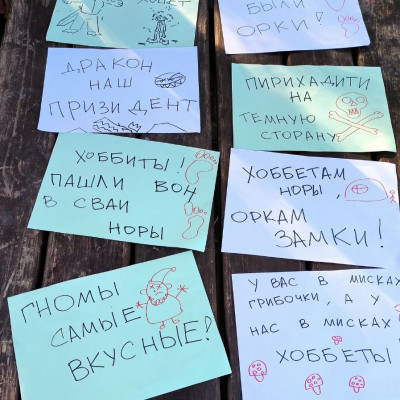 ХОЧЕТ
БЫЛИ
ОРКИ!
ДРАКОН
НАШ
ПРИЗИДЕНТ
ПИРИХАДИТИ
НА
ТЕМНУЮ
СТОРАНУ
ХОББИТЫ!
ПАШЛИ ВОН
В СВАИ
НОРЫ
ХОББЕТАМ
НОРЫ,
ОРКАМ
ЗАМКИ!
ГНОМЫ
САМЫЕ
ВКУСНЫЕ!
У ВАС В МИСКАХ
ГРИБОЧКИ, А У
НАС В МИСКАХ
ХОББЕТЫ